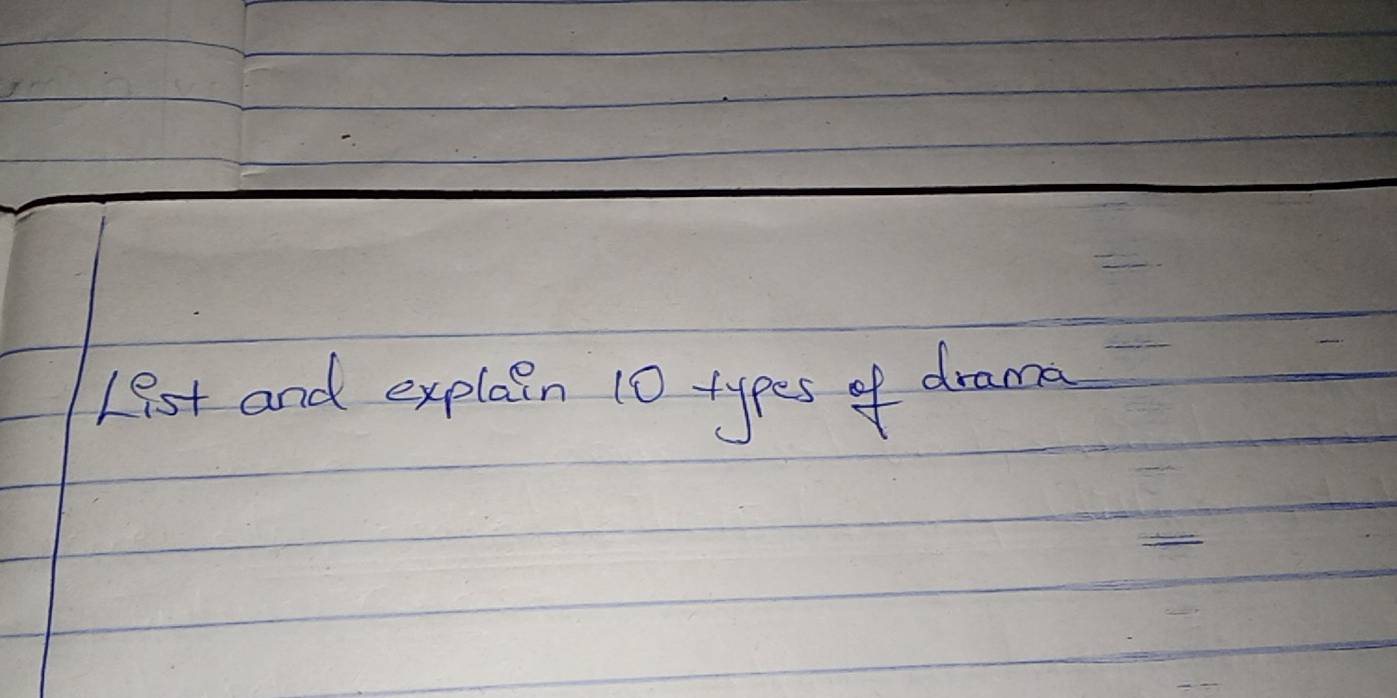 List and explain 10 types of drama